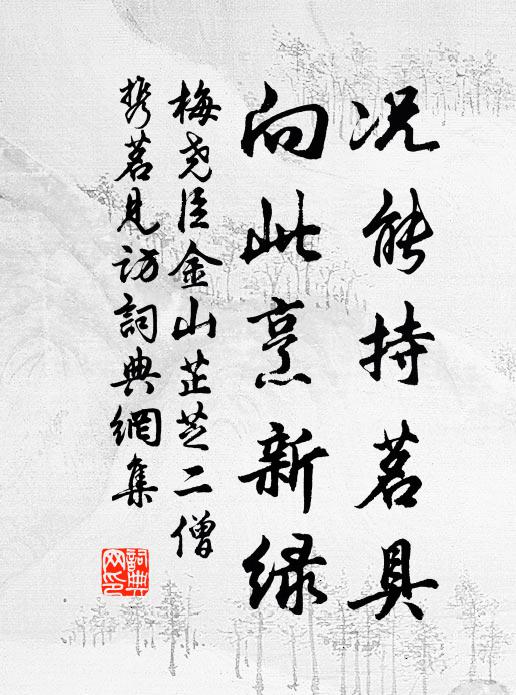 况能持茗具
向此烹新绿
梅尧臣金山芷芝二僧
携茗见访詞典網集
詞典
网印